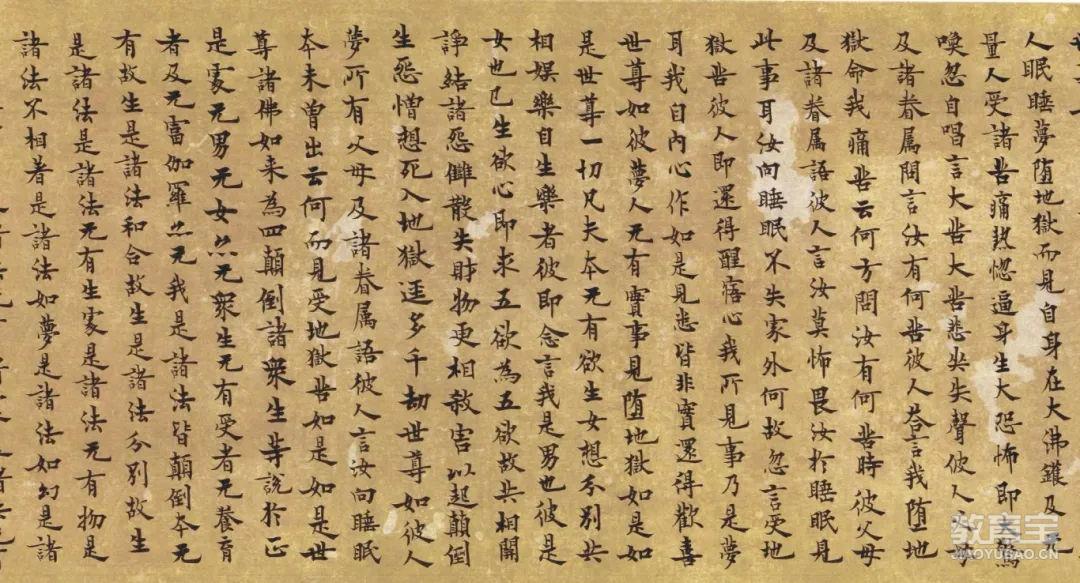 人眠睡夢堕地獄而見自身在大佛鑊及无
量人受諸苦痛熱惚逼身生大恐怖即驚
喚忽自唱言大苦大苦悲哭失聲彼人父母
及諸眷属問言汝有何苦彼人荅言我堕地
獄命我痛苦云何方問汝有何苦時彼父母
及諸眷属語彼人言汝莫怖畏汝於睡眠見
此事耳汝向睡眠不失家外何故忽言受地
獄苦彼人即還得醒寤心我所見事乃是夢
耳我自内心作如是見悉皆非實還得歡喜
世尊如彼夢人无有實事見堕地獄如是如
是世尊一切凡夫本无有欲生女想分別共
相娯樂自生樂者彼即念言我是男也彼是
女也已生欲心即求五欲為五欲故共相鬪
諍結諸惡讎散失財物更相敘害以起顛倒
生惡憎想死入地獄逕多千劫世尊如彼人
夢所有父母及諸眷属語彼人言汝向睡眠
本未曽出云何而見受地獄苦如是如是世
尊諸佛如来為四顛倒諸衆生等說於正
是處无男无女亦无衆生无有受者无養育
者及无富伽羅亦无我是諸法皆顛倒本无
有故生是諸法和合故生是諸法分別故生
是諸法是諸法无有生處是諸法无有物是
諸法不相著是諸法如夢是諸法如幻是諸
教育宝
JIAOYUBAO.CN